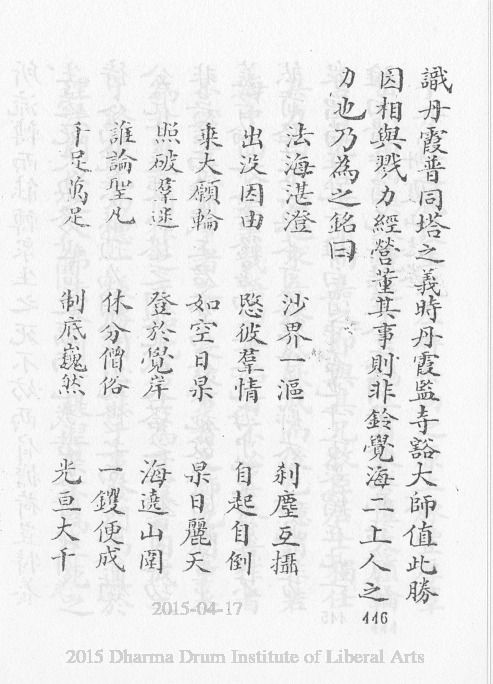 識丹霞普同塔之義時丹霞監寺豁大師值此勝
因相與戮力經營董其事則非鈴覺海二上人之
力也乃為之銘曰
法海湛澄 沙界一漚 刹塵互攝
出没因由 愍彼羣情 自起自倒
乘大願輪 如空日杲 杲日麗天
照破羣迷 登於覺岸 海遶山圍
誰論聖凡 休分僧俗 一钁便成
千足萬足 制底巍然 光亘大千
116
2015-04-17
2015 Dharma Drum Institute of Liberal Arts